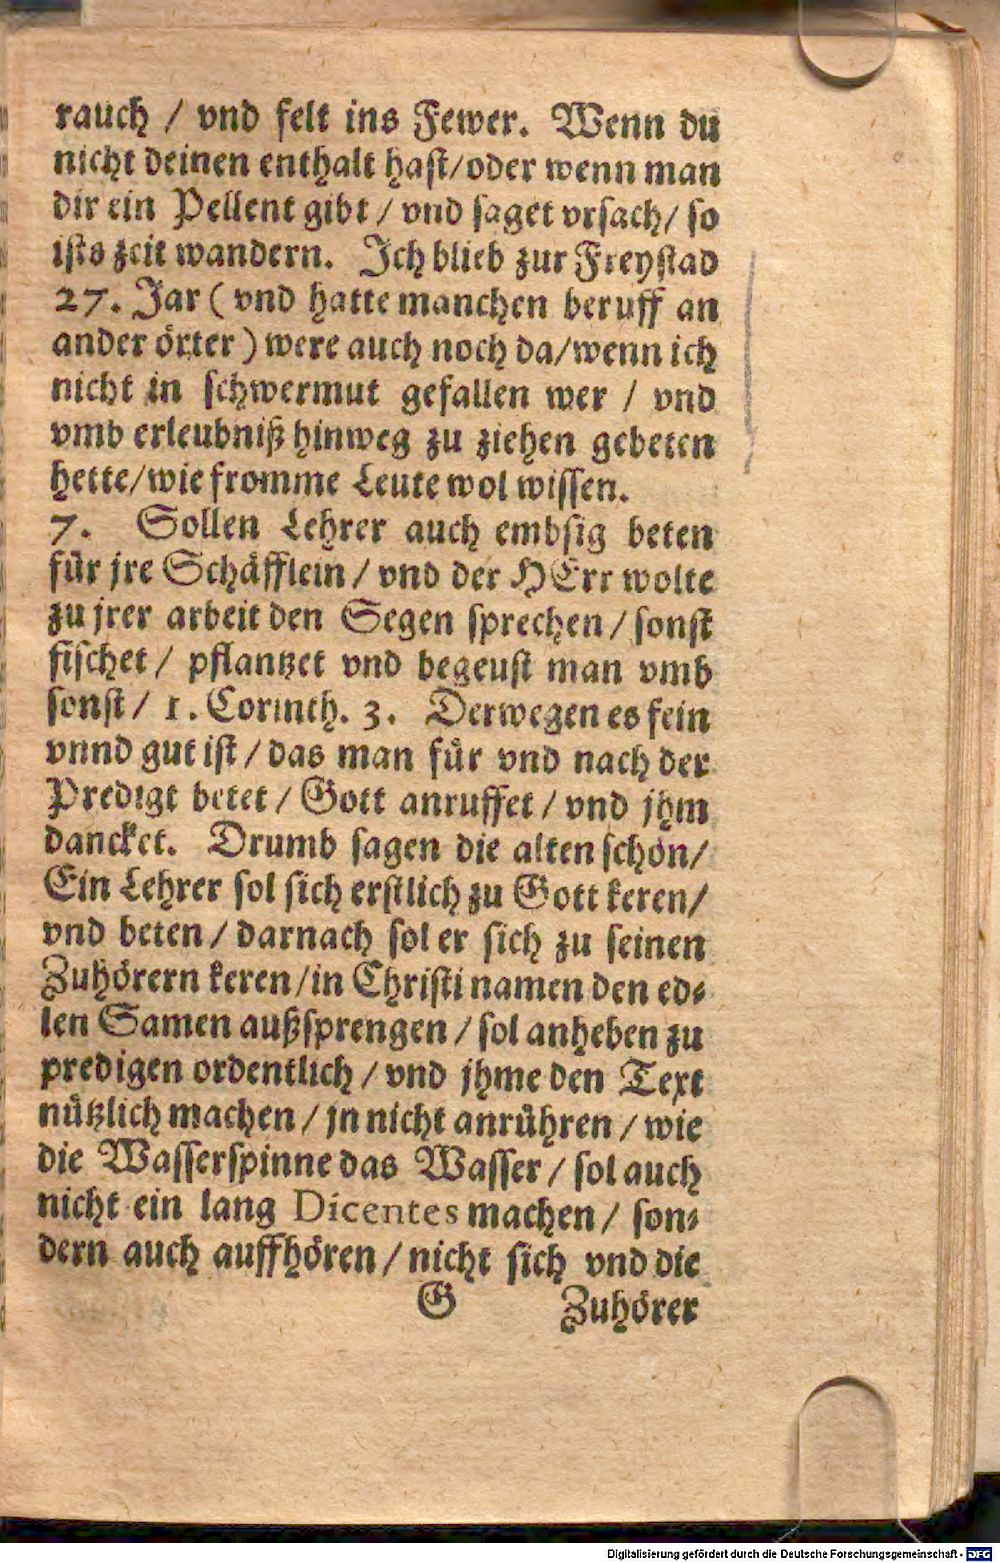 rauch / vnd felt ins Fewer. Wenn du
nicht deinen enthalt hast/oder wenn man
dir ein Pellent gibt / vnd saget vrsach/ so
ists zeit wandern. Ich blieb zur Freystad
27. Jar ( vnd hatte manchen beruff an
ander örter ) were auch noch da/wenn ich
nicht in schwermut gefallen wer / vnd
vmb erleubniß hinweg zu ziehen gebeten
hette/wie fromme Leute wol wissen.
7. Sollen Lehrer auch embsig beten
für jre Schäfflein / vnd der HErr wolte
zu jrer arbeit den Segen sprechen / sonst
fischet / pflantzet vnd begeust man vmb
sonst / 1. Corinth. 3. Derwegen es fein
vnnd gut ist / das man für vnd nach der
Predigt betet / Gott anruffet / vnd jhm
dancket. Drumb sagen die alten schön/
Ein Lehrer sol sich erstlich zu Gott keren/
vnd beten / darnach sol er sich zu seinen
Zuhörern keren /in Christi namen den ed⸗
len Samen außsprengen / sol anheben zu
predigen ordentlich / vnd jhme den Text
nützlich machen / jn nicht anrühren / wie
die Wasserspinne das Wasser / sol auch
nicht ein lang Dicentes machen / son⸗
dern auch auffhören / nicht sich vnd die
G Zuhörer
Digitalisierung gefördert durch die Deutsche Forschungsgemeinschaft - DFG